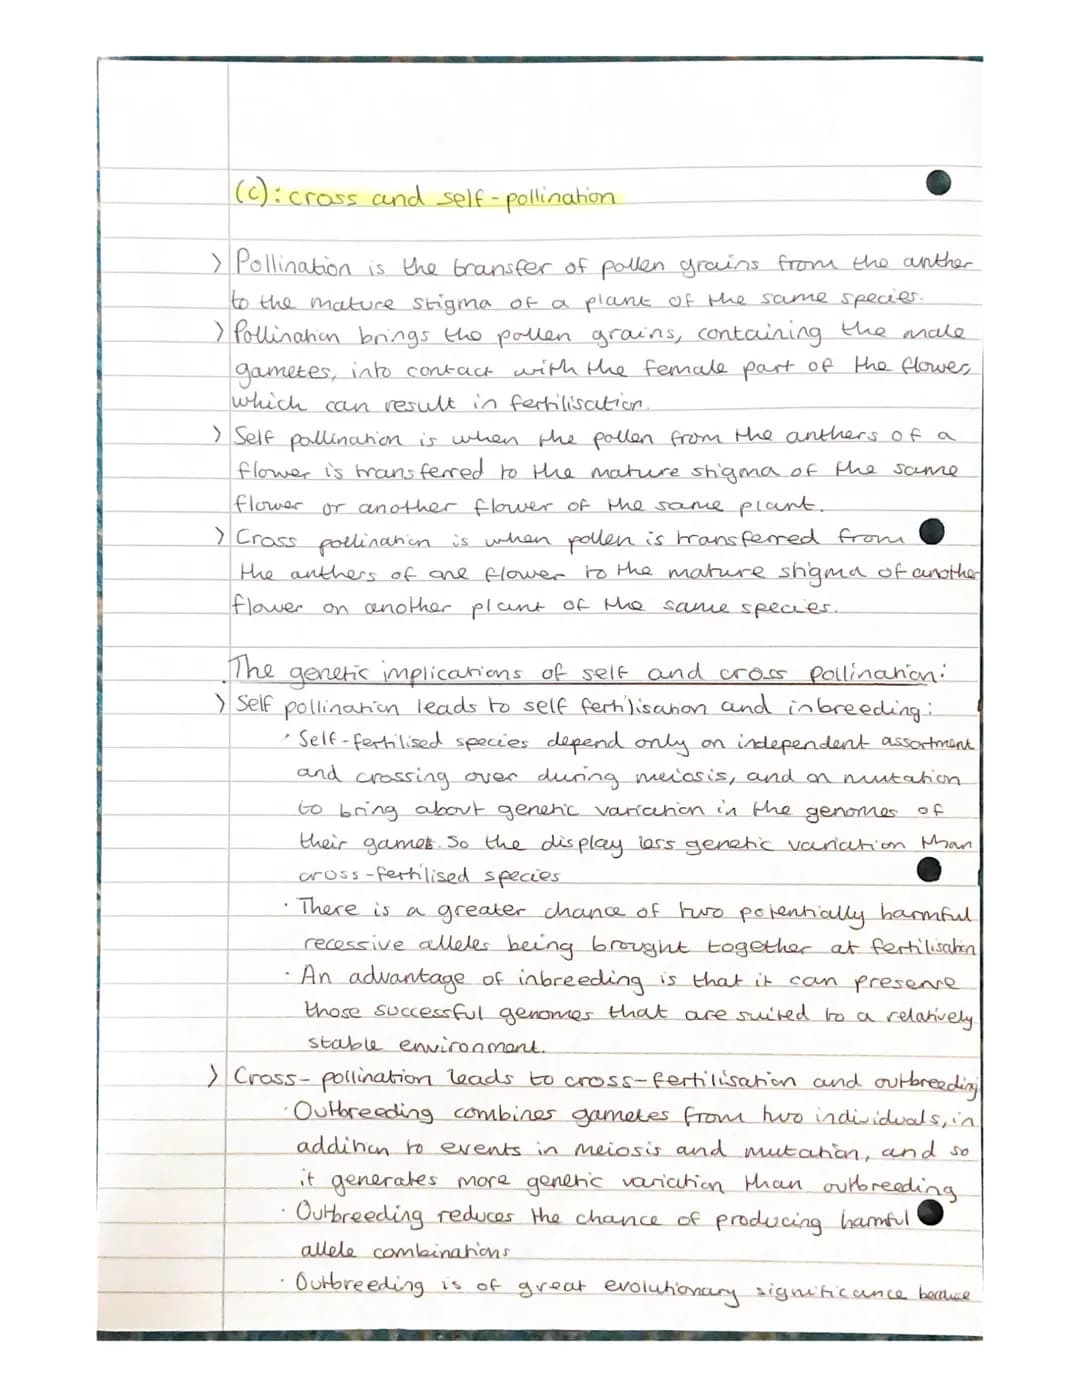 (c): cross and self-pollination
> Pollination is the transfer of pollen grains from the anther
to the mature stigma of a plant of the same species.
> Pollination brings the pollen grains, containing the male
gametes, into contact with the female part of the flower,
which can result in fertilisation.
> Self pollination is when the pollen from the anthers of a
flower is transferred to the mature stigma of the same
flower or another flower of the same plant.
> Cross pollination is when pollen is transferred from
the anthers of one flower to the mature stigma of another
flower on another plant of the same species.
The genetic implications of self and cross pollination:
> Self pollination leads to self fertilisation and inbreeding:
· Self-fertilised species depend only on independent assortment
and crossing over during meiosis, and on mutation
to bring about genetic variation in the genomes of
their gamets. So the display less genetic variation than
cross-fertilised species
· There is a greater chance of two potentially harmful
recessive alleles being brought together at fertilisation
· An advantage of inbreeding is that it can preserve
those successful genomes that are suited to a relatively
stable environment.
> Cross-pollination leads to cross-fertilisation and outbreeding
· Outbreeding combines gametes from two individuals, in
addition to events in meiosis and mutation, and so
it generates more genetic variation than outbreeding
· Outbreeding reduces the chance of producing harmful
allele combinations
· Outbreeding is of great evolutionary significance because